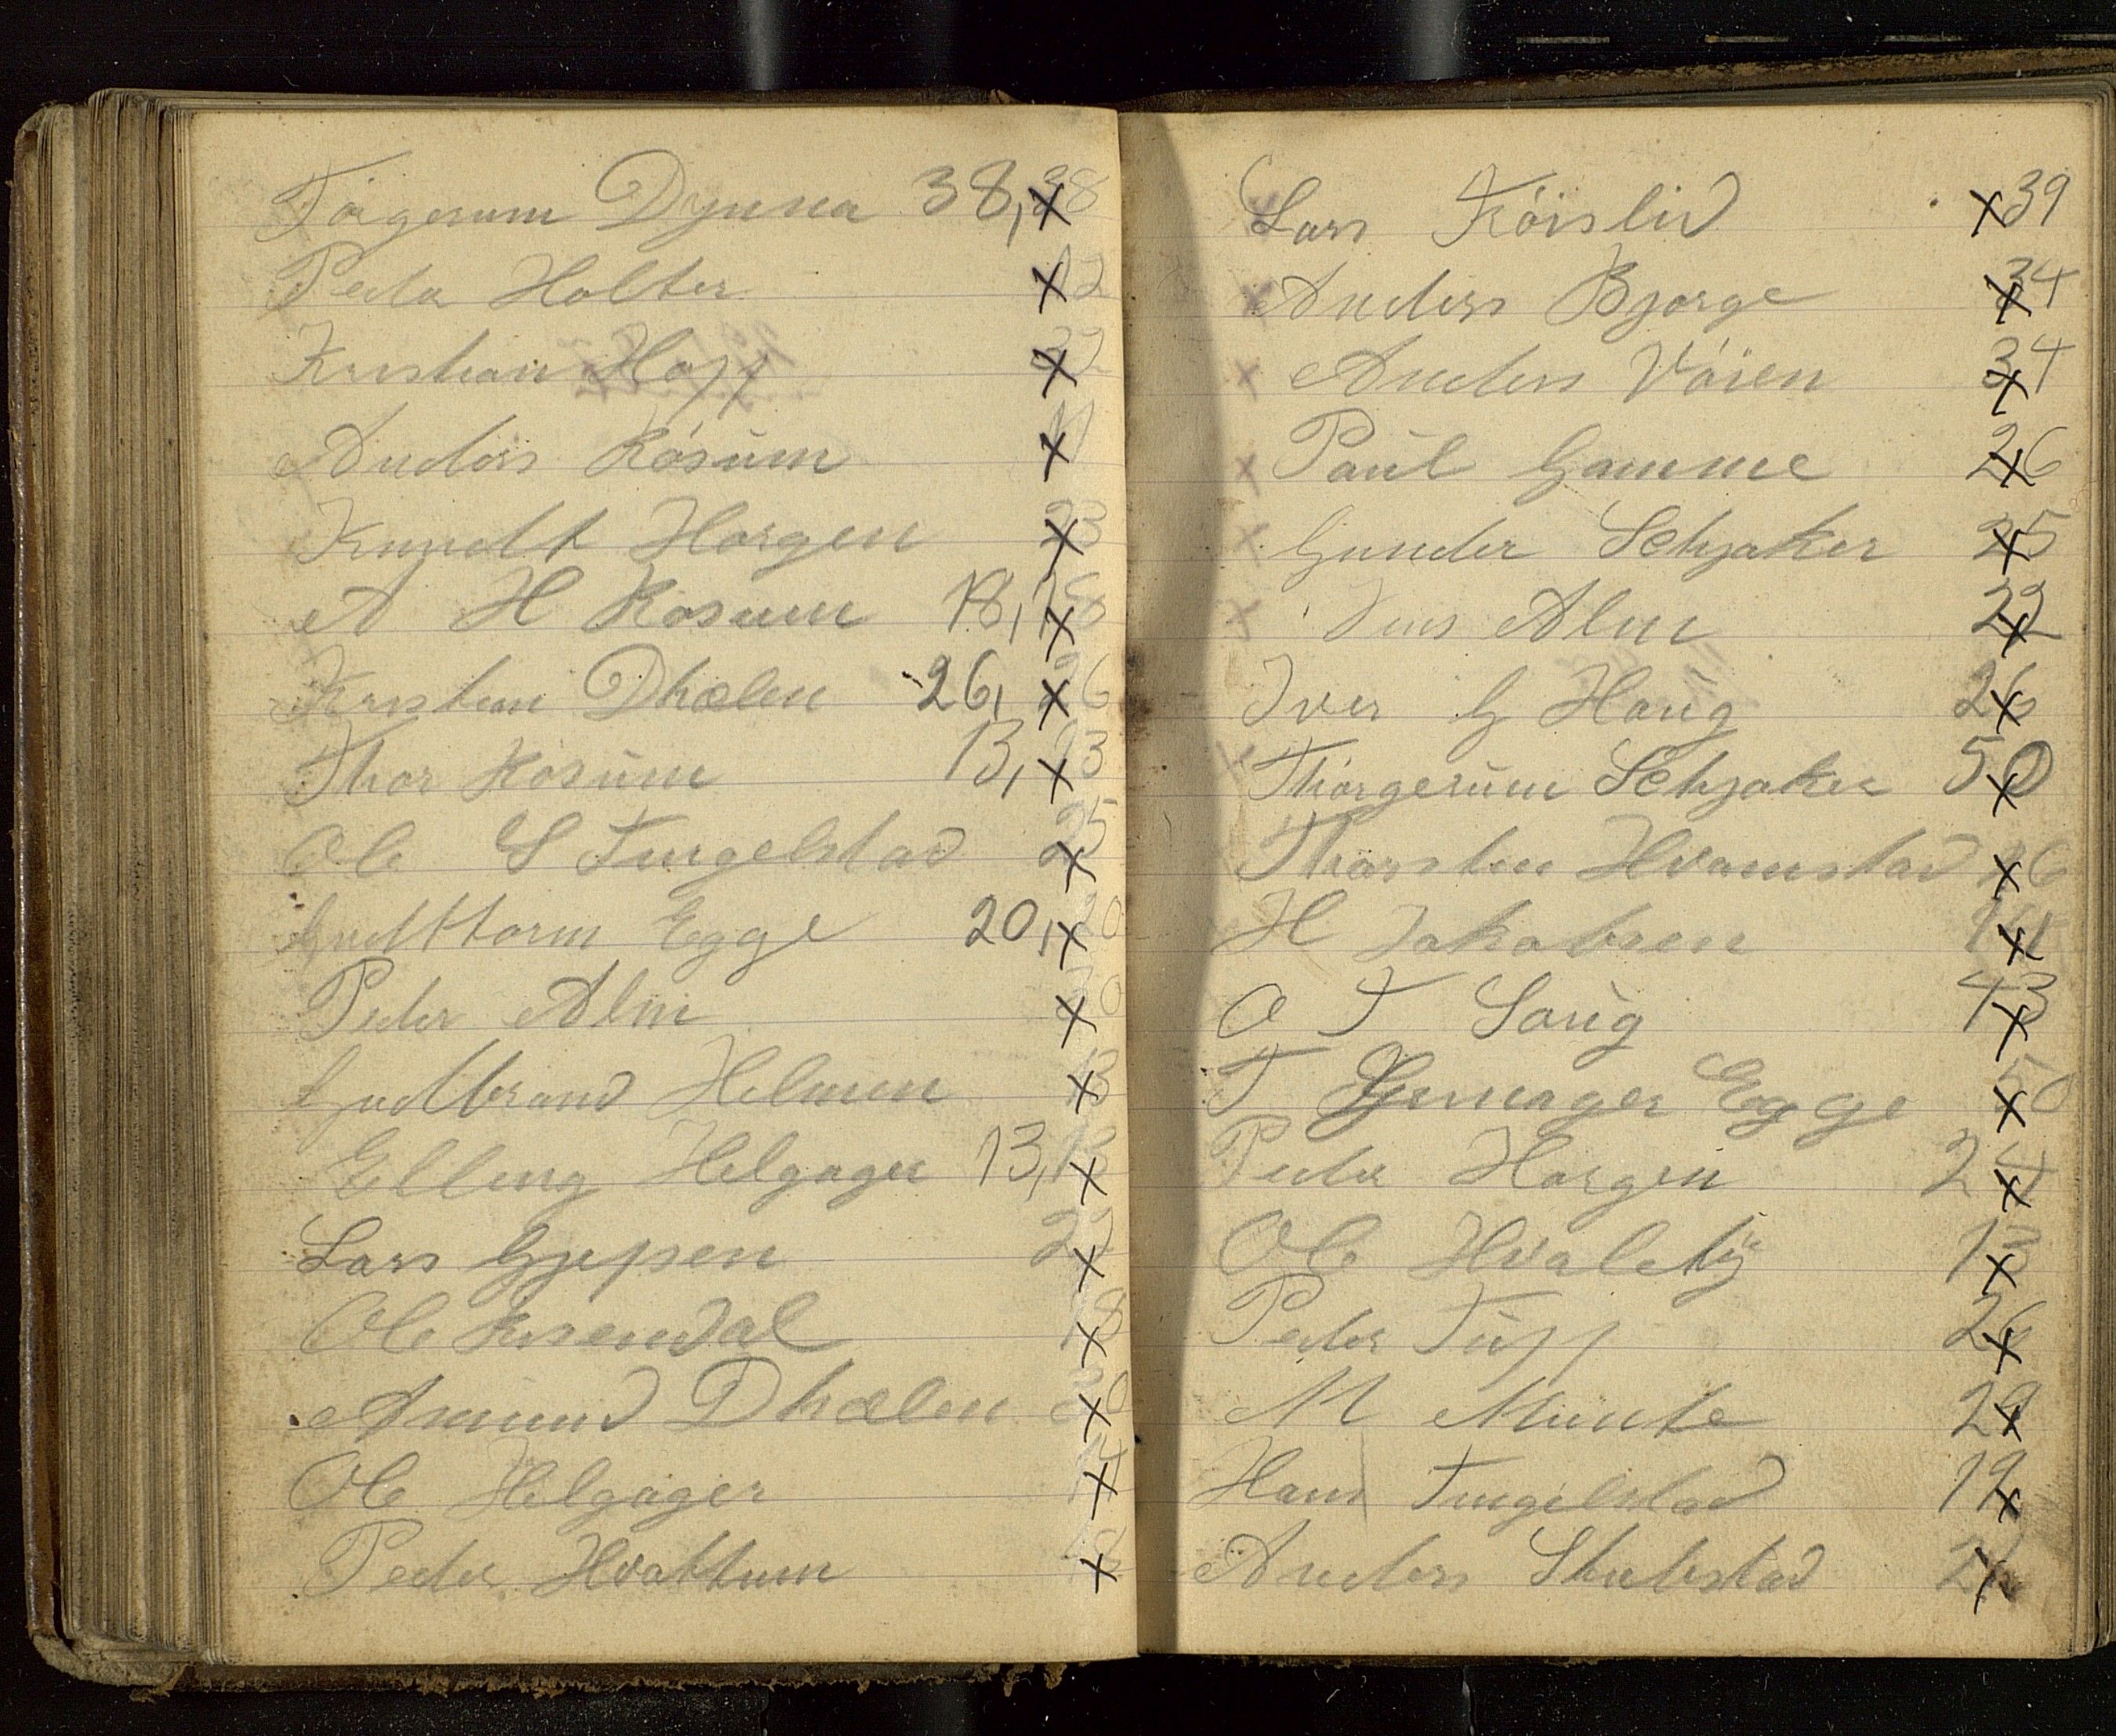 Torgerum Dynna 38, 38
Peder Holter 12
Kristian Hopp 32
Anders Kosum 11
Knudt Horgen 23
A H Kosum 18, 18
Kristian Dhælen 26, 26
Thor Kosum 13, 13
Ole S Tingelstad 25
Gudttorm Egge 20, 20
Peder Alm 30
Gudbrand Helmen 13
Elling Helgager 13, 13
Lars Gjepsen
Ole Rosendal 18
Amund Dhælen
Ole Helgager 14
Peder Hvattum 18
Lars Kőrslid 39
Anders Bjorge 34
Anders Vőien 34
Paul Gamme 26
Gunder Schjaker 25
Jens Alm 22
Iver G Haug 26
Thorgerum Schjaker 50
Thorsten Hvamstad 26
H Jakobsen 11
O T Saug 43
T Gjermager Egge 50
Peder Horgen 24
Ole Hvaleby 13
Peder Tupp 26
M Munte 29
Hans Tingelstad 19
Anders Stubstad